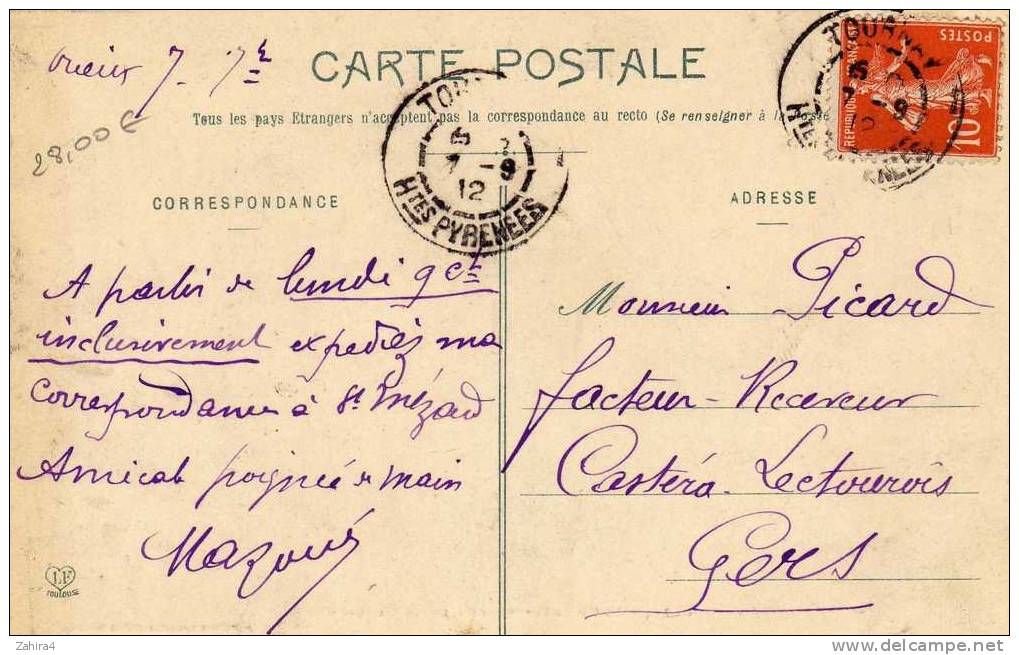 Orieix 7. 7bre
CARTE POSTALE
Tous les pays Etrangers n'acceptent pas la correspondance au recto (Se renseigner à la Poste
28,00€
TOURNAY
7 - 9
12
HTES PYRENEES
POSTES
10
CORRESPONDANCE
A partir de lundi 9 ct
inclusivement expediez ma
correspondance à St Mézard
Amicale poignée de main
ADRESSE
Monsieur Picard
facteur-Receveur
Castéra-Lectourois
Gers
LF
TOULOUSE
Zahira4
www.delcampe.net